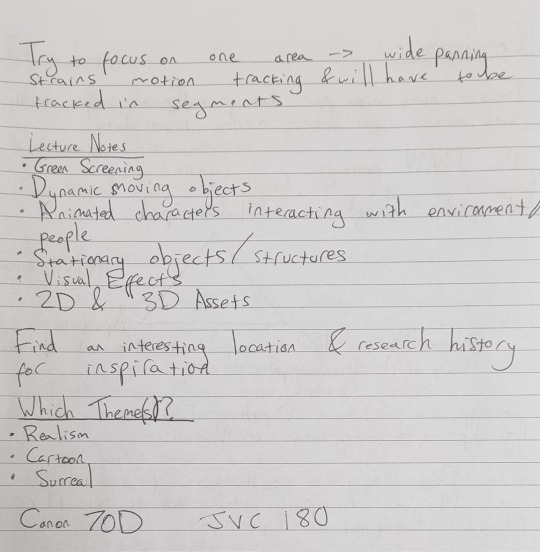 Try to focus on one area -> wide panning
strains motion tracking & will have to be
tracked in segments
Lecture Notes
• Green Screening
• Dynamic moving objects
• Animated characters interacting with environment/
people
• Stationary objects/structures
• Visual Effects
• 2D & 3D Assets
Find an interesting location & research history
for inspiration
Which Theme(s)?
• Realism
• Cartoon
• Surreal
Canon 70D JVC 180